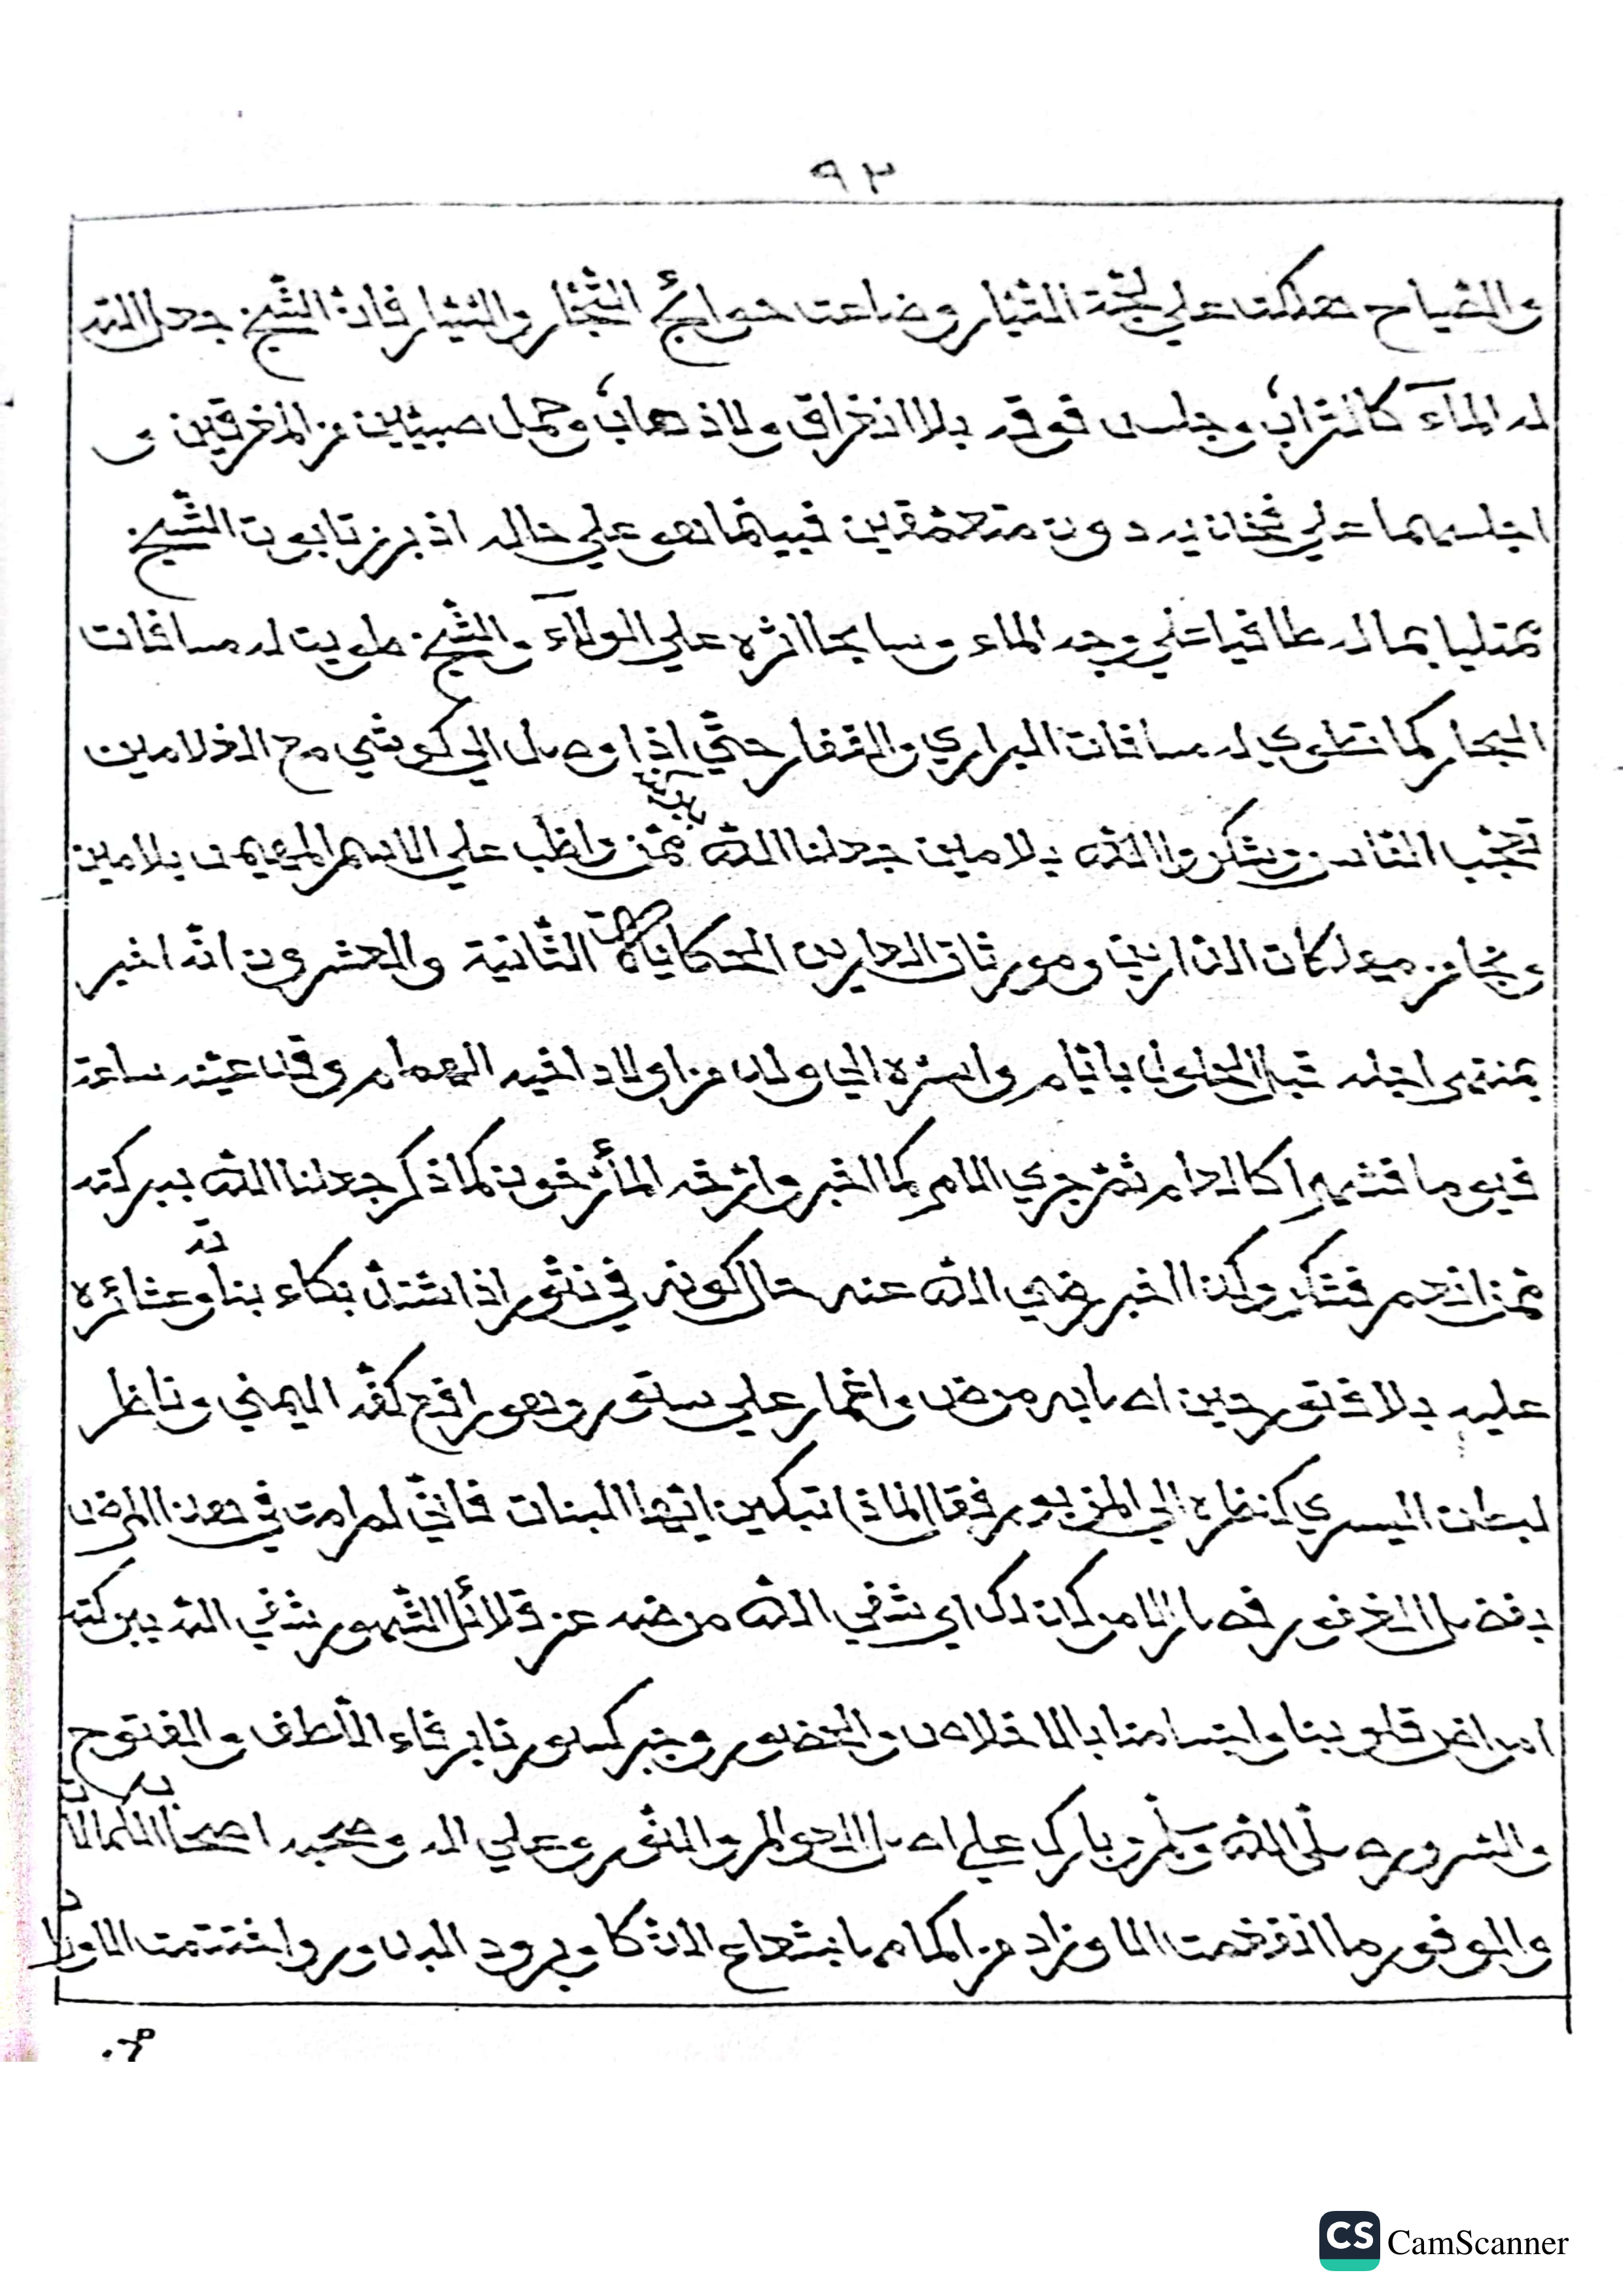 ٩٢
والصياح هلكت علي لجة التيار وضاعت حوائج التجار والنيار فان الشيخ جعل الله
له المآء كالتراب وجلس فوقه بلا انغراق ولا ذهاب وحمل صبيين من المغرقين و
اجلسهما علي فخذيه دون متعمقين فبينما هو علي حاله اذ برز تابوت الشيخ
ممتليا بماله طافيا علي وجه الماء وسابحا اثره علي الولآء والشيخ طويت له مسافات
البحار كما تطوي له مسافات البراري والقفار حتي اذا وصل الي كوشي مع الغلامين
تعجب الناس وشكروا الله بلا مين جعلنا الله ممن واظب علي الاسم المهيمن بلا مين
ونجا من مهلكات الدارين ومورثات العارين الحكاية الثانية والعشرون انه اخبر
بمنتهى اجله قبل الحلول بايام واسره الي ولد من اولاد اخيه الهمام وقد عينه ساعة
فيوما فشهرا كالعام ثم جري الامر كما اخبر وارخه المأرخون كما ذكر جعلنا الله ببركته
ممن انعم فشكر وكذا اخبر رضي الله عنه حال كونه في نثور اذا اشتد بكاء بناته وعشائره
عليه بلا فتور حين اصابه مرض واغمار علي ستور وهو رافع كفه اليمني وناظر
لبطن اليسري كنظره الي المزبور فقال لماذا تبكين ايتها البنات فاني لم امت في هذا المرض
بفضل الغفور فصار الامر كذلك اي شفي الله مرضه عن قلائل الشهور شفي الله ببركته
امراض قلوبنا واجسامنا بالاخلاص والحضور وجبر كسورنا برفاء الألطف والفتوح
والسرور صلى الله وسلم وبارك علي اصل العوالم والنور وعلي اله وصحبه اصحاب
والوفور ما انفغمت الا وزاد من اكمام بشعاع الذكا وبرود البدور واختتمت الاوراد